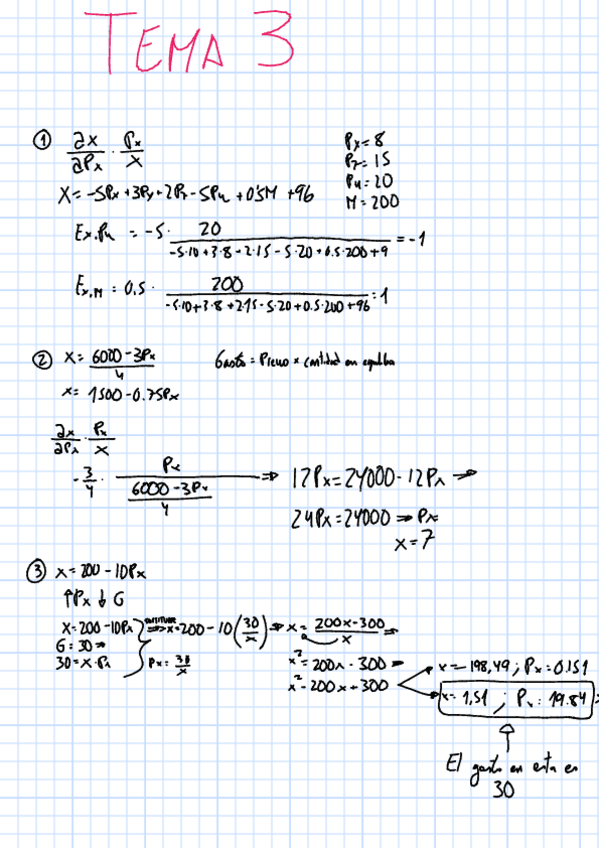 TEMA 3
① ∂x/∂Px · Px/x
Px = 8
Pz = 15
Pu = 20
M = 200
X = -5Px + 3Py + 2Pz - 5Pu + 0.5M + 96
Ex.Pu = -5 · 20/(-5·10+3·8-2·15-5·20+0.5·200+9) = -1
Ex,M = 0.5 · 200/(-5·10+3·8+2·15-5·20+0.5·200+96) = 1
② x = (6000-3Px)/4
Gasto = Precio x cantidad en
x = 1500 - 0.75Px
∂x/∂Px · Px/x
-3/4 · Px/((6000-3Px)/4) ⇒ 12Px = 24000 - 12Px ⇒
24Px = 24000 ⇒ Px
x = 7
③ x = 200 - 10Px
↑Px ↓ G
X = 200 - 10Px
G = 30 ⇒
30 = x · Px
Px = 30/x
⇒ x = 200 - 10(30/x) ⇒ x = (200x - 300)/x ⇒
x² = 200x - 300 ⇒
x² - 200x + 300
x = 198,49 ; Px = 0.151
x = 1,51 ; Px = 19.84
El gasto en esta es
30